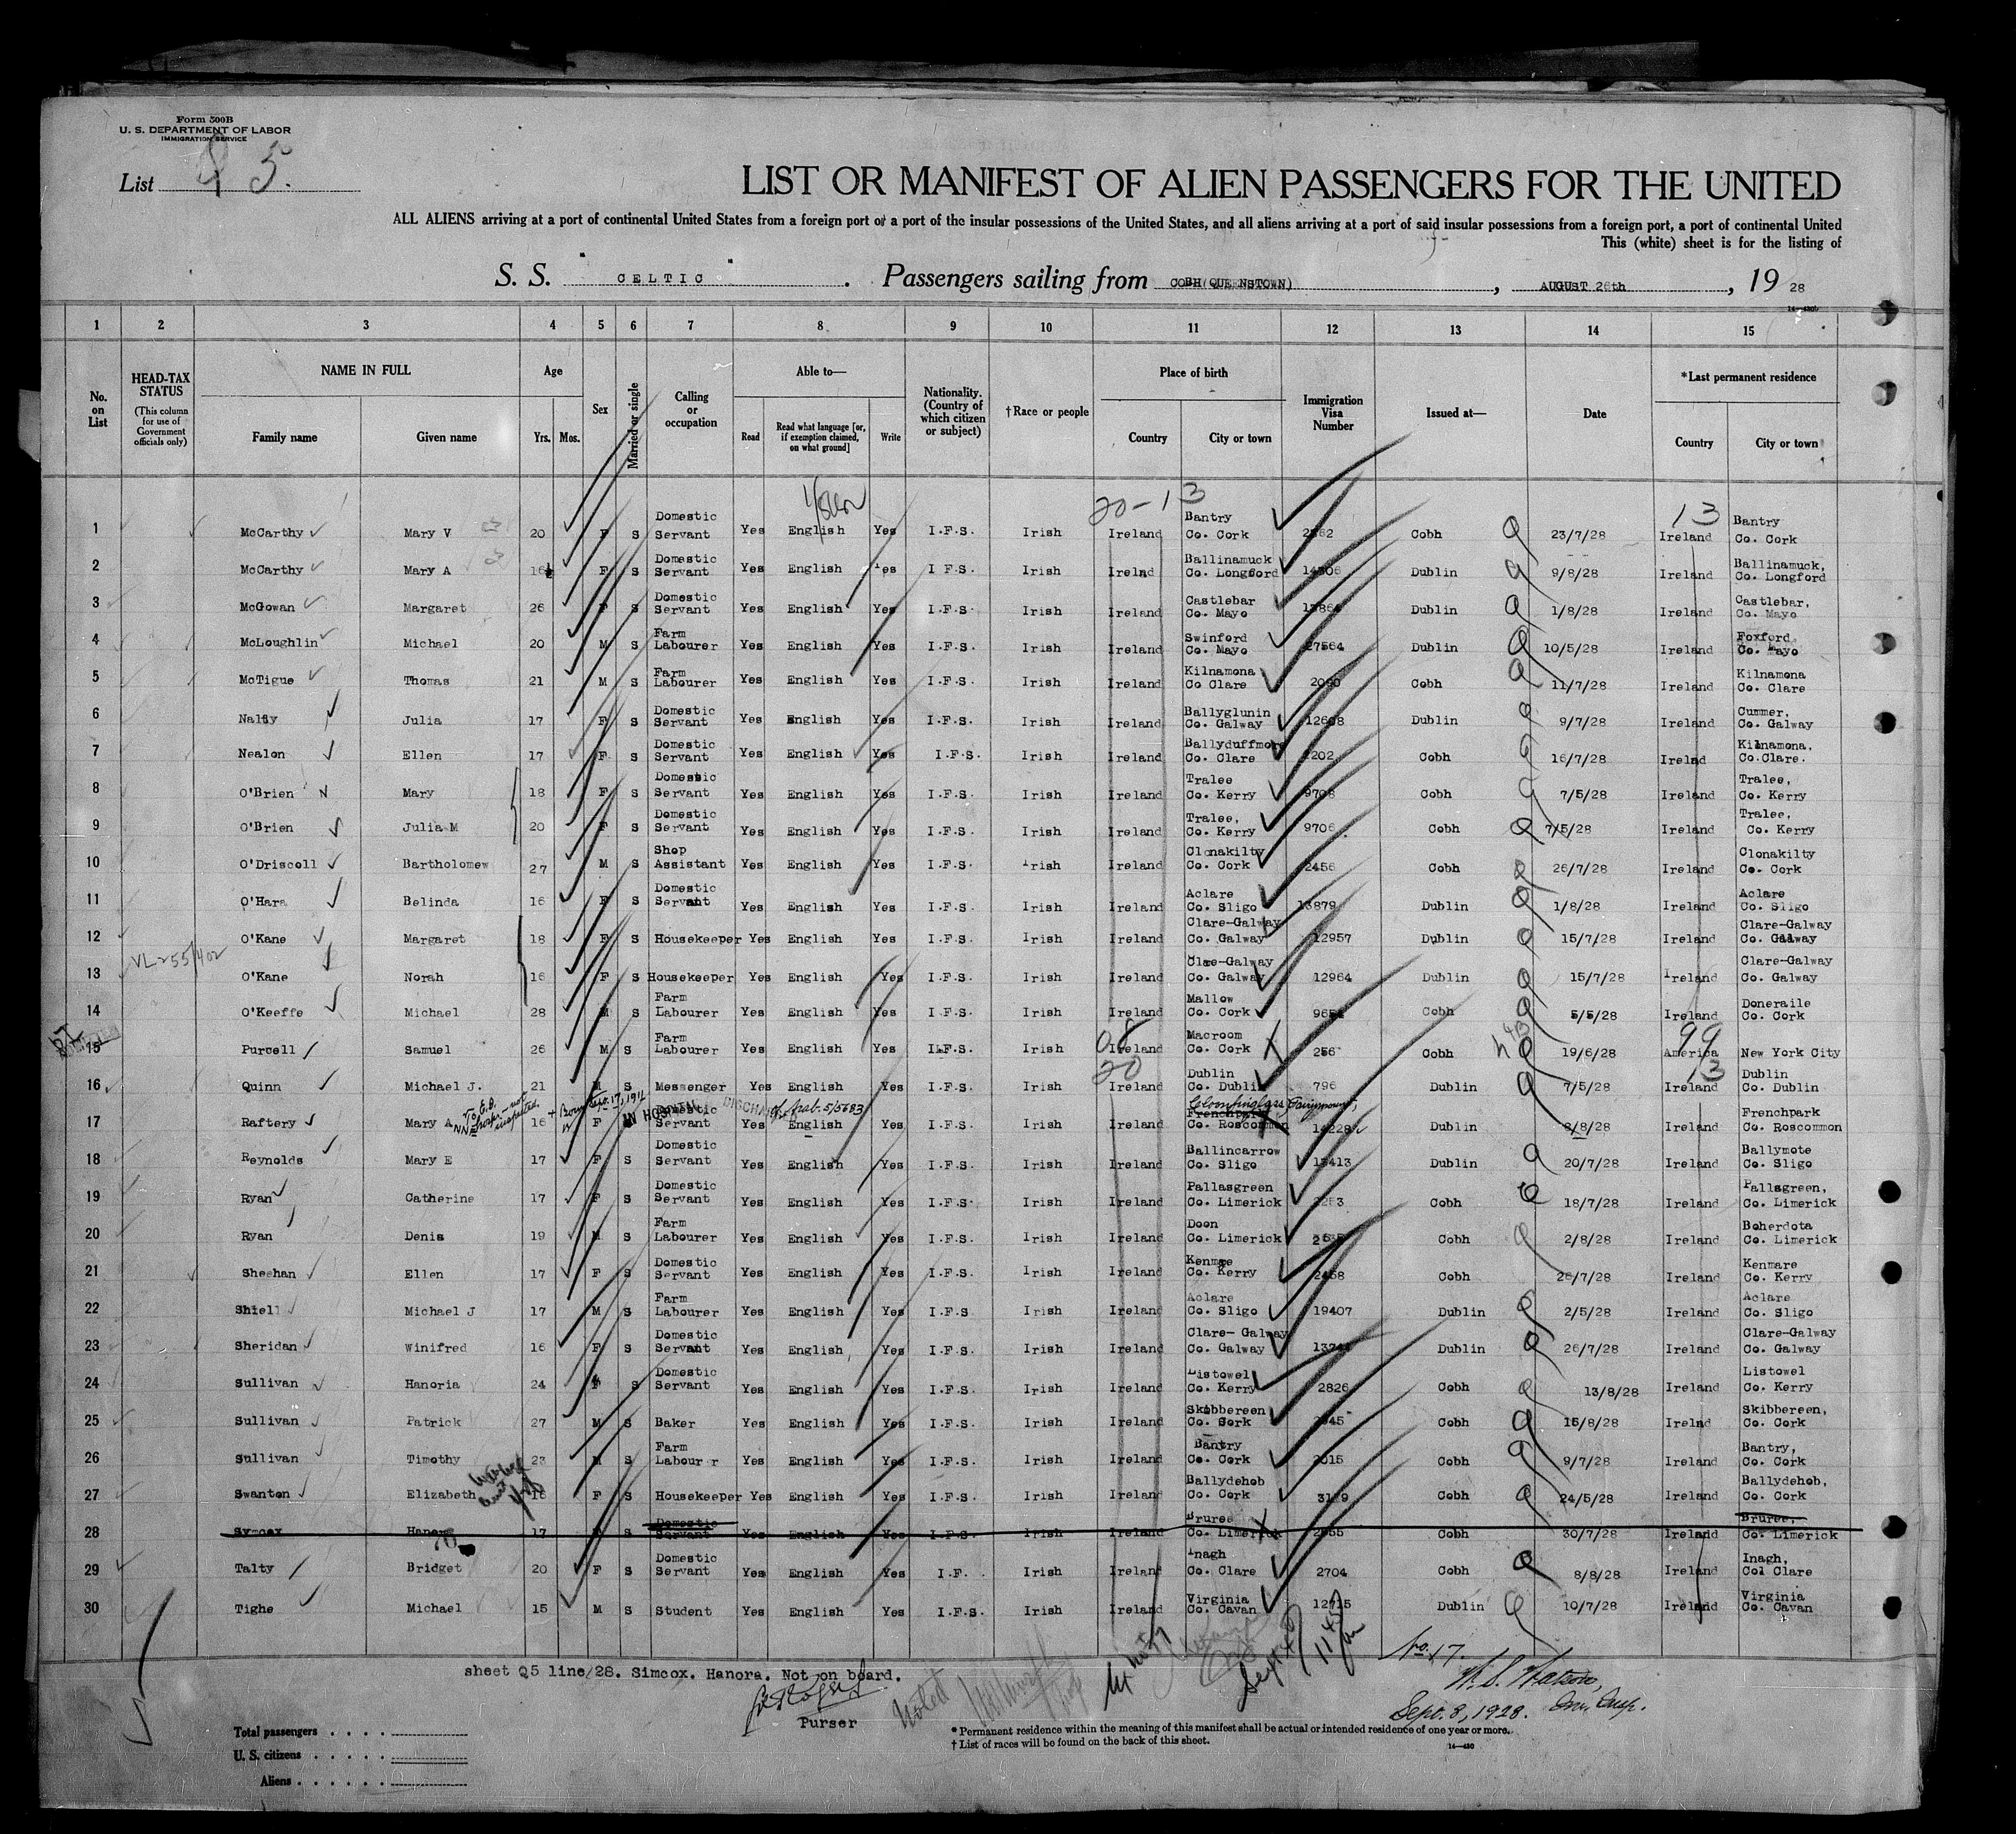 Form 500B
U. S. DEPARTMENT OF LABOR
IMMIGRATION SERVICE
List 5.
LIST OR MANIFEST OF ALIEN PASSENGERS FOR THE UNITED
ALL ALIENS arriving at a port of continental United States from a foreign port or a port of the insular possessions of the United States, and all aliens arriving at a port of said insular possessions from a foreign port, a port of continental United
This (white) sheet is for the listing of
S. S. "CELTIC". Passengers sailing from COBH(QUEENSTOWN), AUGUST 26th, 19 28
14-430b
1 2 3 4 5 6 7 8 9 10 11 12 13 14 15
No. on List
HEAD-TAX STATUS (This column for use of Government officials only)
NAME IN FULL Family name Given name
Age Yrs. Mos.
Sex
Married or single
Calling or occupation
Able to— Read Read what language [or, if exemption claimed, on what ground] Write
Nationality. (Country of which citizen or subject)
†Race or people
Place of birth Country City or town
Immigration Visa Number
Issued at—
Date
*Last permanent residence Country City or town
20-13 13
1 McCarthy Mary V 20 F S Domestic Servant Yes English Yes I.F.S. Irish Ireland Bantry Co. Cork Cobh 23/7/28 Ireland Bantry Co. Cork
2 McCarthy Mary A 16 F S Domestic Servant Yes English Yes I F.S. Irish Irelnd Ballinamuck Co. Longford Dublin 9/8/28 Ireland Ballinamuck, Co. Longford
3 McGowan Margaret 26 F S Domestic Servant Yes English Yes I.F.S. Irish Ireland Castlebar Co. Mayo Dublin 1/8/28 Ireland Castlebar, Co. Mayo
4 McLoughlin Michael 20 M S Farm Labourer Yes English Yes I.F.S. Irish Ireland Swinford Co. Mayo 27564 Dublin 10/5/28 Ireland Foxford Co. Mayo
5 McTigue Thomas 21 M S Farm Labourer Yes English Yes I.F.S. Irish Ireland Kilnamona Co Clare Cobh 11/7/28 Ireland Kilnamona Co. Clare
6 Julia 17 F S Domestic Servant Yes English Yes I.F.S. Irish Ireland Ballyglunin Co. Galway Dublin 9/7/28 Ireland Cummer, Co. Galway
7 Nealon Ellen 17 F S Domestic Servant Yes English Yes I.F.S. Irish Ireland Ballyduffmore Co. Clare Cobh 16/7/28 Irelnd Kilnamona, Co.Clare.
8 O'Brien Mary 18 F S Domestic Servant Yes English Yes I.F.S. Irish Ireland Tralee Co. Kerry Cobh 7/5/28 Ireland Tralee, Co. Kerry
9 O'Brien Julia M 20 F S Domestic Servant Yes English Yes I.F.S. Irish Ireland Tralee, Co. Kerry 9706 Cobh 7/5/28 Ireland Tralee, Co. Kerry
10 O'Driscoll Bartholomew 27 M S Shop Assistant Yes English Yes I.F.S. Irish Ireland Clonakilty Co. Cork 2456 Cobh 26/7/28 Ireland Clonakilty Co. Cork
11 O'Hara Belinda 16 F S Domestic Servant Yes English Yes I.F.S. Irish Ireland Aclare Co. Sligo 13879 Dublin 1/8/28 Ireland Aclare Co. Sligo
12 O'Kane Margaret 18 F S Housekeeper Yes English Yes I.F.S. Irish Ireland Clare-Galway Co. Galway 12957 Dublin 15/7/28 Ireland Clare-Galway Co. Galway
VL-255/402
13 O'Kane Norah 16 F S Housekeeper Yes English Yes I.F.S. Irish Ireland Clare-Galway Co. Galway 12964 Dublin 15/7/28 Ireland Clare-Galway Co. Galway
14 O'Keeffe Michael 28 M S Farm Labourer Yes English Yes I.F.S. Irish Ireland Mallow Co. Cork Cobh 5/5/28 Ireland Doneraile Co. Cork
08 99
15 Purcell Samuel 26 M S Farm Labourer Yes English Yes I.F.S. Irish Ireland Macroom Co. Cork 256 Cobh 19/6/28 America New York City
20 13
16 Quinn Michael J. 21 M S Messenger Yes English Yes I.F.S. Irish Ireland Dublin Co. Dublin 796 Dublin 7/5/28 Ireland Dublin Co. Dublin
Born Sept. 17, 1911 IN HOSPITAL DISCHARGED
17 Raftery Mary A 16 F Domestic Servant Yes English Yes I.F.S. Irish Ireland Frenchpark Co. Roscommon 14228 Dublin 8/8/28 Ireland Frenchpark Co Roscommon
18 Reynolds Mary E 17 F S Domestic Servant Yes English Yes I.F.S. Irish Ireland Ballincarrow Co. Sligo 13413 Dublin 20/7/28 Ireland Ballymote Co. Sligo
19 Ryan Catherine 17 F S Domestic Servant Yes English Yes I.F.S. Irish Ireland Pallasgreen Co. Limerick Cobh 18/7/28 Ireland Pallsgreen, Co. Limerick
20 Ryan Denis 19 M S Farm Labourer Yes English Yes I.F.S. Irish Ireland Doon Co. Limerick Cobh 2/8/28 Ireland Boherdota Co. Limerick
21 Sheehan Ellen 17 F S Domestic Servant Yes English Yes I.F.S. Irish Ireland Kenmare Co. Kerry 2458 Cobh 26/7/28 Ireland Kenmare Co. Kerry
22 Shiell Michael J 17 M S Farm Labourer Yes English Yes I.F.S Irish Ireland Aclare Co. Sligo 19407 Dublin 2/5/28 Ireland Aclare Co. Sligo
23 Sheridan Winifred 16 F S Domestic Servant Yes English Yes I.F.S. Irish Ireland Clare- Galway Co. Galway Dublin 26/7/28 Ireland Clare-Galway Co. Galway
24 Sullivan Hanoria 24 F S Domestic Servant Yes English Yes I.F.S. Irish Ireland Listowel Co. Kerry 2826 Cobh 13/8/28 Ireland Listowel Co. Kerry
25 Sullivan Patrick 27 M S Baker Yes English Yes I.F.S. Irish Ireland Skibbereen Co. Cork Cobh 15/8/28 Irelnd Skibbereen, Co. Cork
26 Sullivan Timothy 23 M S Farm Labour r Yes English Yes I.F.S. Irish Ireland Bantry Co. Cork 2015 Cobh 9/7/28 Ireland Bantry, Co. Cork
27 Swanton Elizabeth 16 F S Housekeeper Yes English Yes I.F.S. Irish Ireland Ballydehob Co. Cork Cobh 24/5/28 Ireland Ballydehob, Co. Cork
28 Symcox Hanora 17 F S Domestic Servant Yes English Yes I.F.S. Irish Ireland Bruree Co. Limerick Cobh 30/7/28 Ireland Bruree, Co. Limerick
29 Talty Bridget 20 F S Domestic Servant Yes English Yes I.F. Irish Ireland Inagh Co. Clare 2704 Cobh 8/8/28 Ireland Inagh, Co. Clare
30 Tighe Michael 15 M S Student Yes English Yes I.F.S. Irish Ireland Virginia Co. Cavan 12715 Dublin 10/7/28 Ireland Virginia Co. Cavan
sheet Q5 line 28. Simcox. Hanora. Not on board.
Purser
No. 17.
W. S. Watson,
Sept. 8, 1928. Imm. Insp.
Total passengers . . . .
U. S. citizens . . . . .
Aliens . . . . . .
* Permanent residence within the meaning of this manifest shall be actual or intended residence of one year or more.
† List of races will be found on the back of this sheet.
14-430